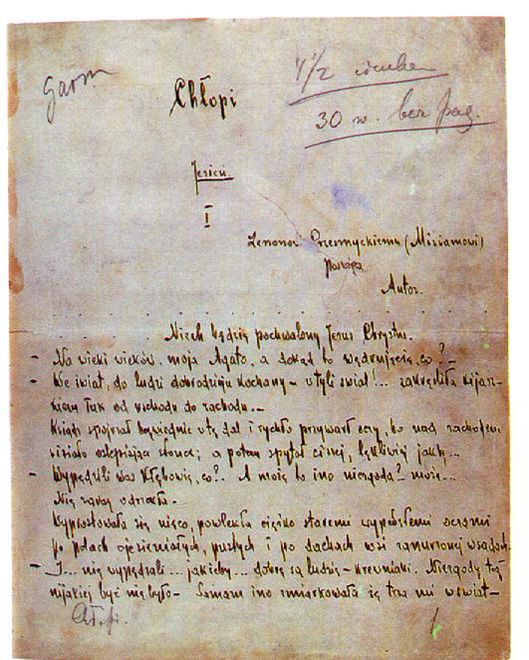 Garm
1 1/2
30 w. bez pag.
Chłopi
Jesień.
I
Zenonowi Przesmyckiemu (Miriamowi)
poświęca
Autor.
Niech będzie pochwalony Jezus Chrystus.
- Na wieki wieków, moja Agato, a dokąd to wędrujecie, co? -
- We świat, do ludzi dobrodzieju kochany - w tyli świat!... zakreśliła kijasz-
kiem łuk od wschodu do zachodu. -
Ksiądz spojrzał bezwiednie w tę dal i rychło przywarł oczy, bo nad zachodem
wisiało oślepiające słońce; a potem spytał ciszej, lękliwiej jakby...
- Wypędzili was Kłębowie, co?.. A może to ino niezgoda?.. może...
Nie zaraz odrzekła. -
Wyprostowała się nieco, powlekła ciężko staremi wypełzłemi oczami
po polach ojesieniałych, pustych i po dachach wsi zanurzonej w sadach.
- I... nie wypędzali... jakżeby... dobre są ludzie - krewniaki. Niezgody też
nijakiej być nie było - Samam ino zmiarkowała że trza mi w świat -